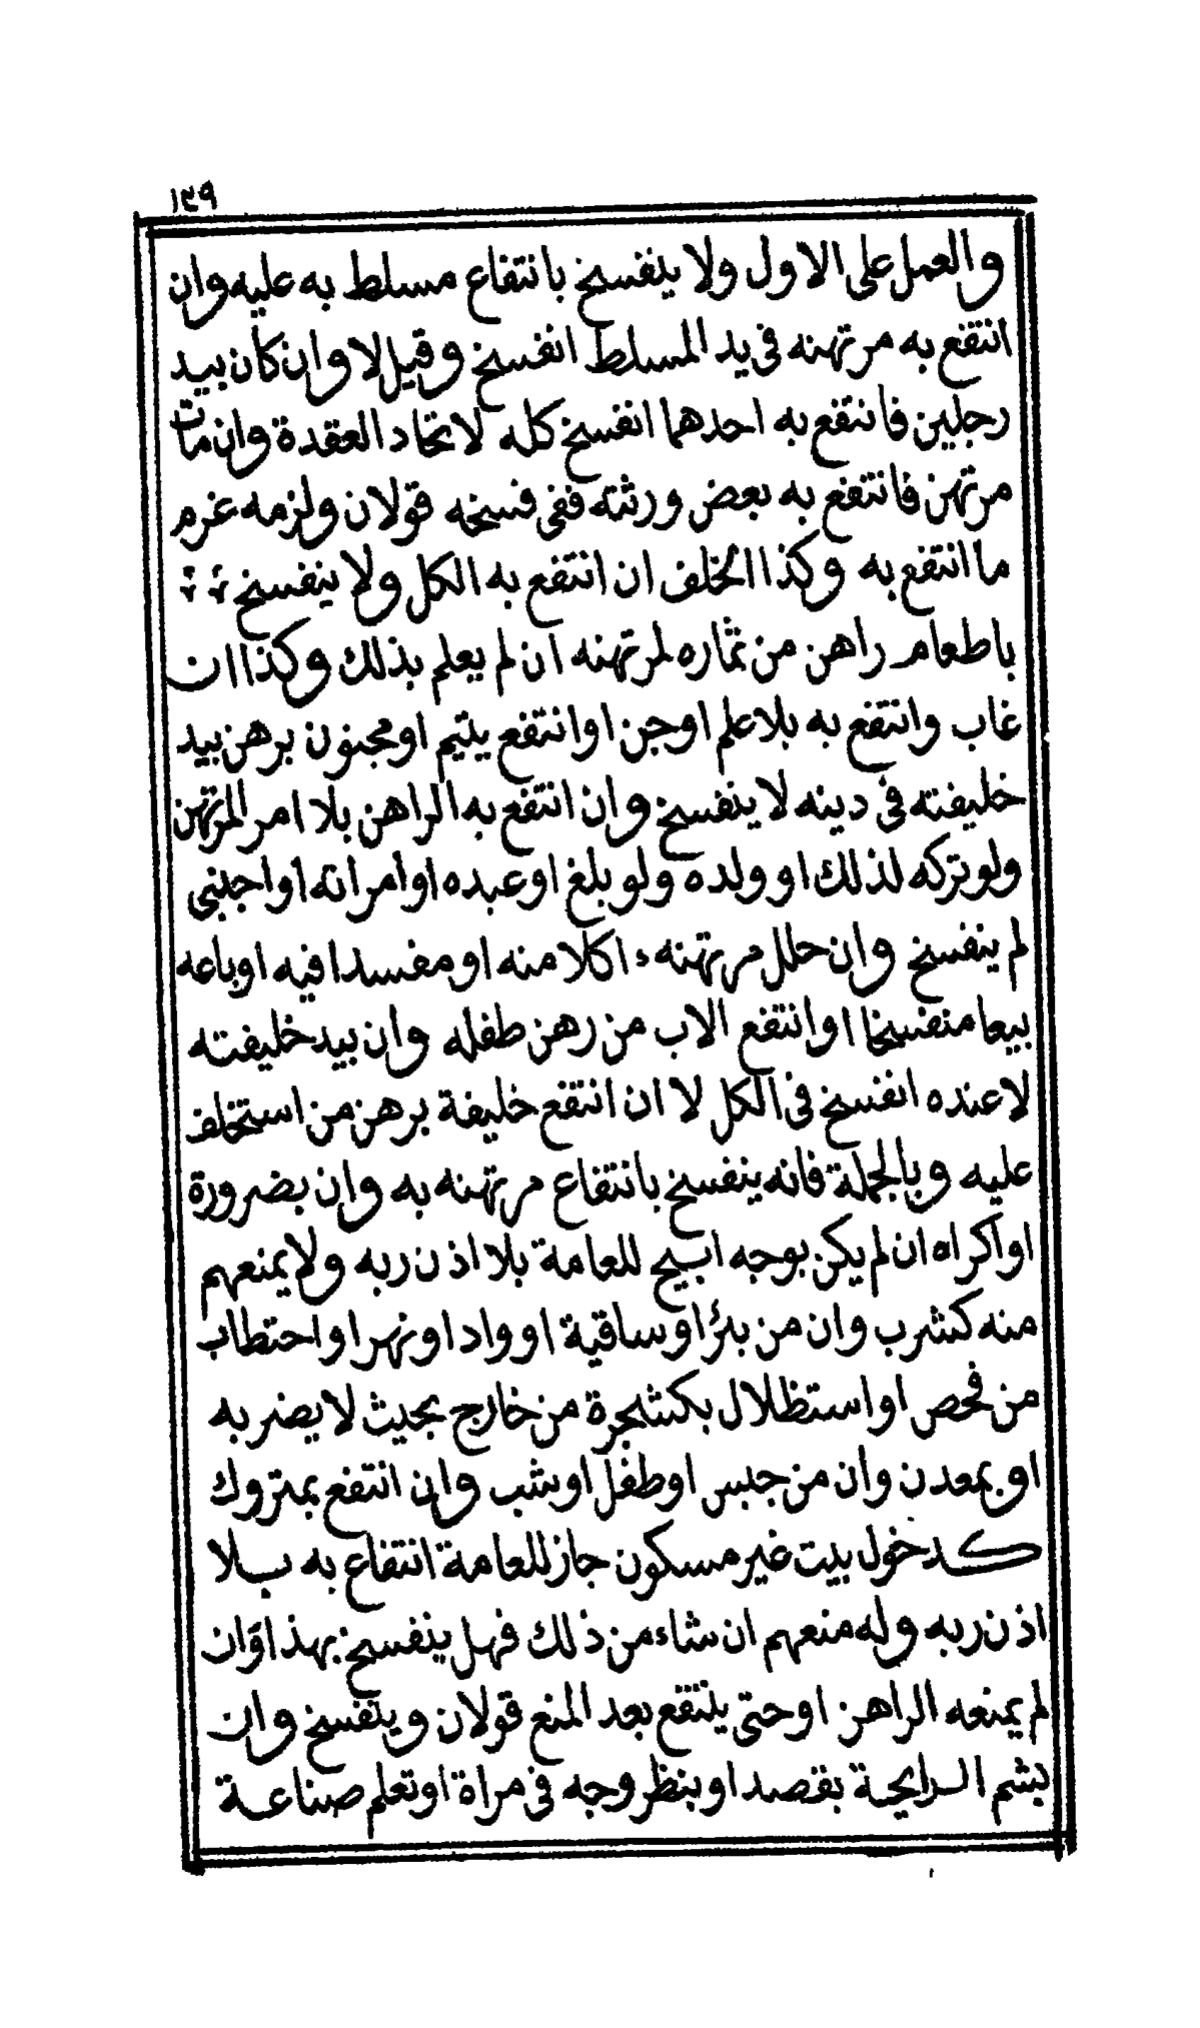 ١٣٩
والعمل على الاول ولا ينفسخ بانتفاع مسلط به عليه وان
انتفع به مرتهنه فى يد المسلط انفسخ وقيل لا وان كان بيد
رجلين فانتفع به احدهما انفسخ كله لاتحاد العقدة وان مات
مرتهن فانتفع به بعض ورثته ففى فسخه قولان ولزمه غرم
ما انتفع به وكذا الخلف ان انتفع به الكل ولا ينفسخ
باطعام راهن من ثماره لمرتهنه ان لم يعلم بذلك وكذا ان
غاب وانتفع به بلا علم اوجن اوانتفع يتيم اومجنون برهن بيد
خليفته فى دينه لا ينفسخ وان انتفع به الراهن بلا امر المرتهن
ولو تركه لذلك او ولده ولو بلغ اوعبده اوامراته اواجنبى
لم ينفسخ وان حلل مرتهنه اكلا منه او مفسدا فيه اوباعه
بيعا منفسخا اوانتفع الاب من رهن طفله وان بيد خليفته
لاعنده انفسخ فى الكل لا ان انتفع خليفة برهن من استخلف
عليه وبالجملة فانه ينفسخ بانتفاع مرتهنه به وان بضرورة
اواكراه ان لم يكن بوجه ابيح للعامة بلا اذن ربه ولا يمنعهم
منه كشرب وان من بئر اوساقية او واد اونهر اواحتطاب
من فحص اواستظلال بكشجرة من خارج بحيث لا يضر به
اوبمعدن وان من جبس اوطفل اوشب وان انتفع بمتروك
كدخول بيت غير مسكون جاز للعامة انتفاع به بلا
اذن ربه وله منعهم ان شاء من ذلك فهل ينفسخ بهذا وان
لم يمنعه الراهن اوحتى ينتفع بعد المنع قولان وينفسخ وان
بشم الرايحة بقصد اوبنظر وجه فى مراة اوتعلم صناعة